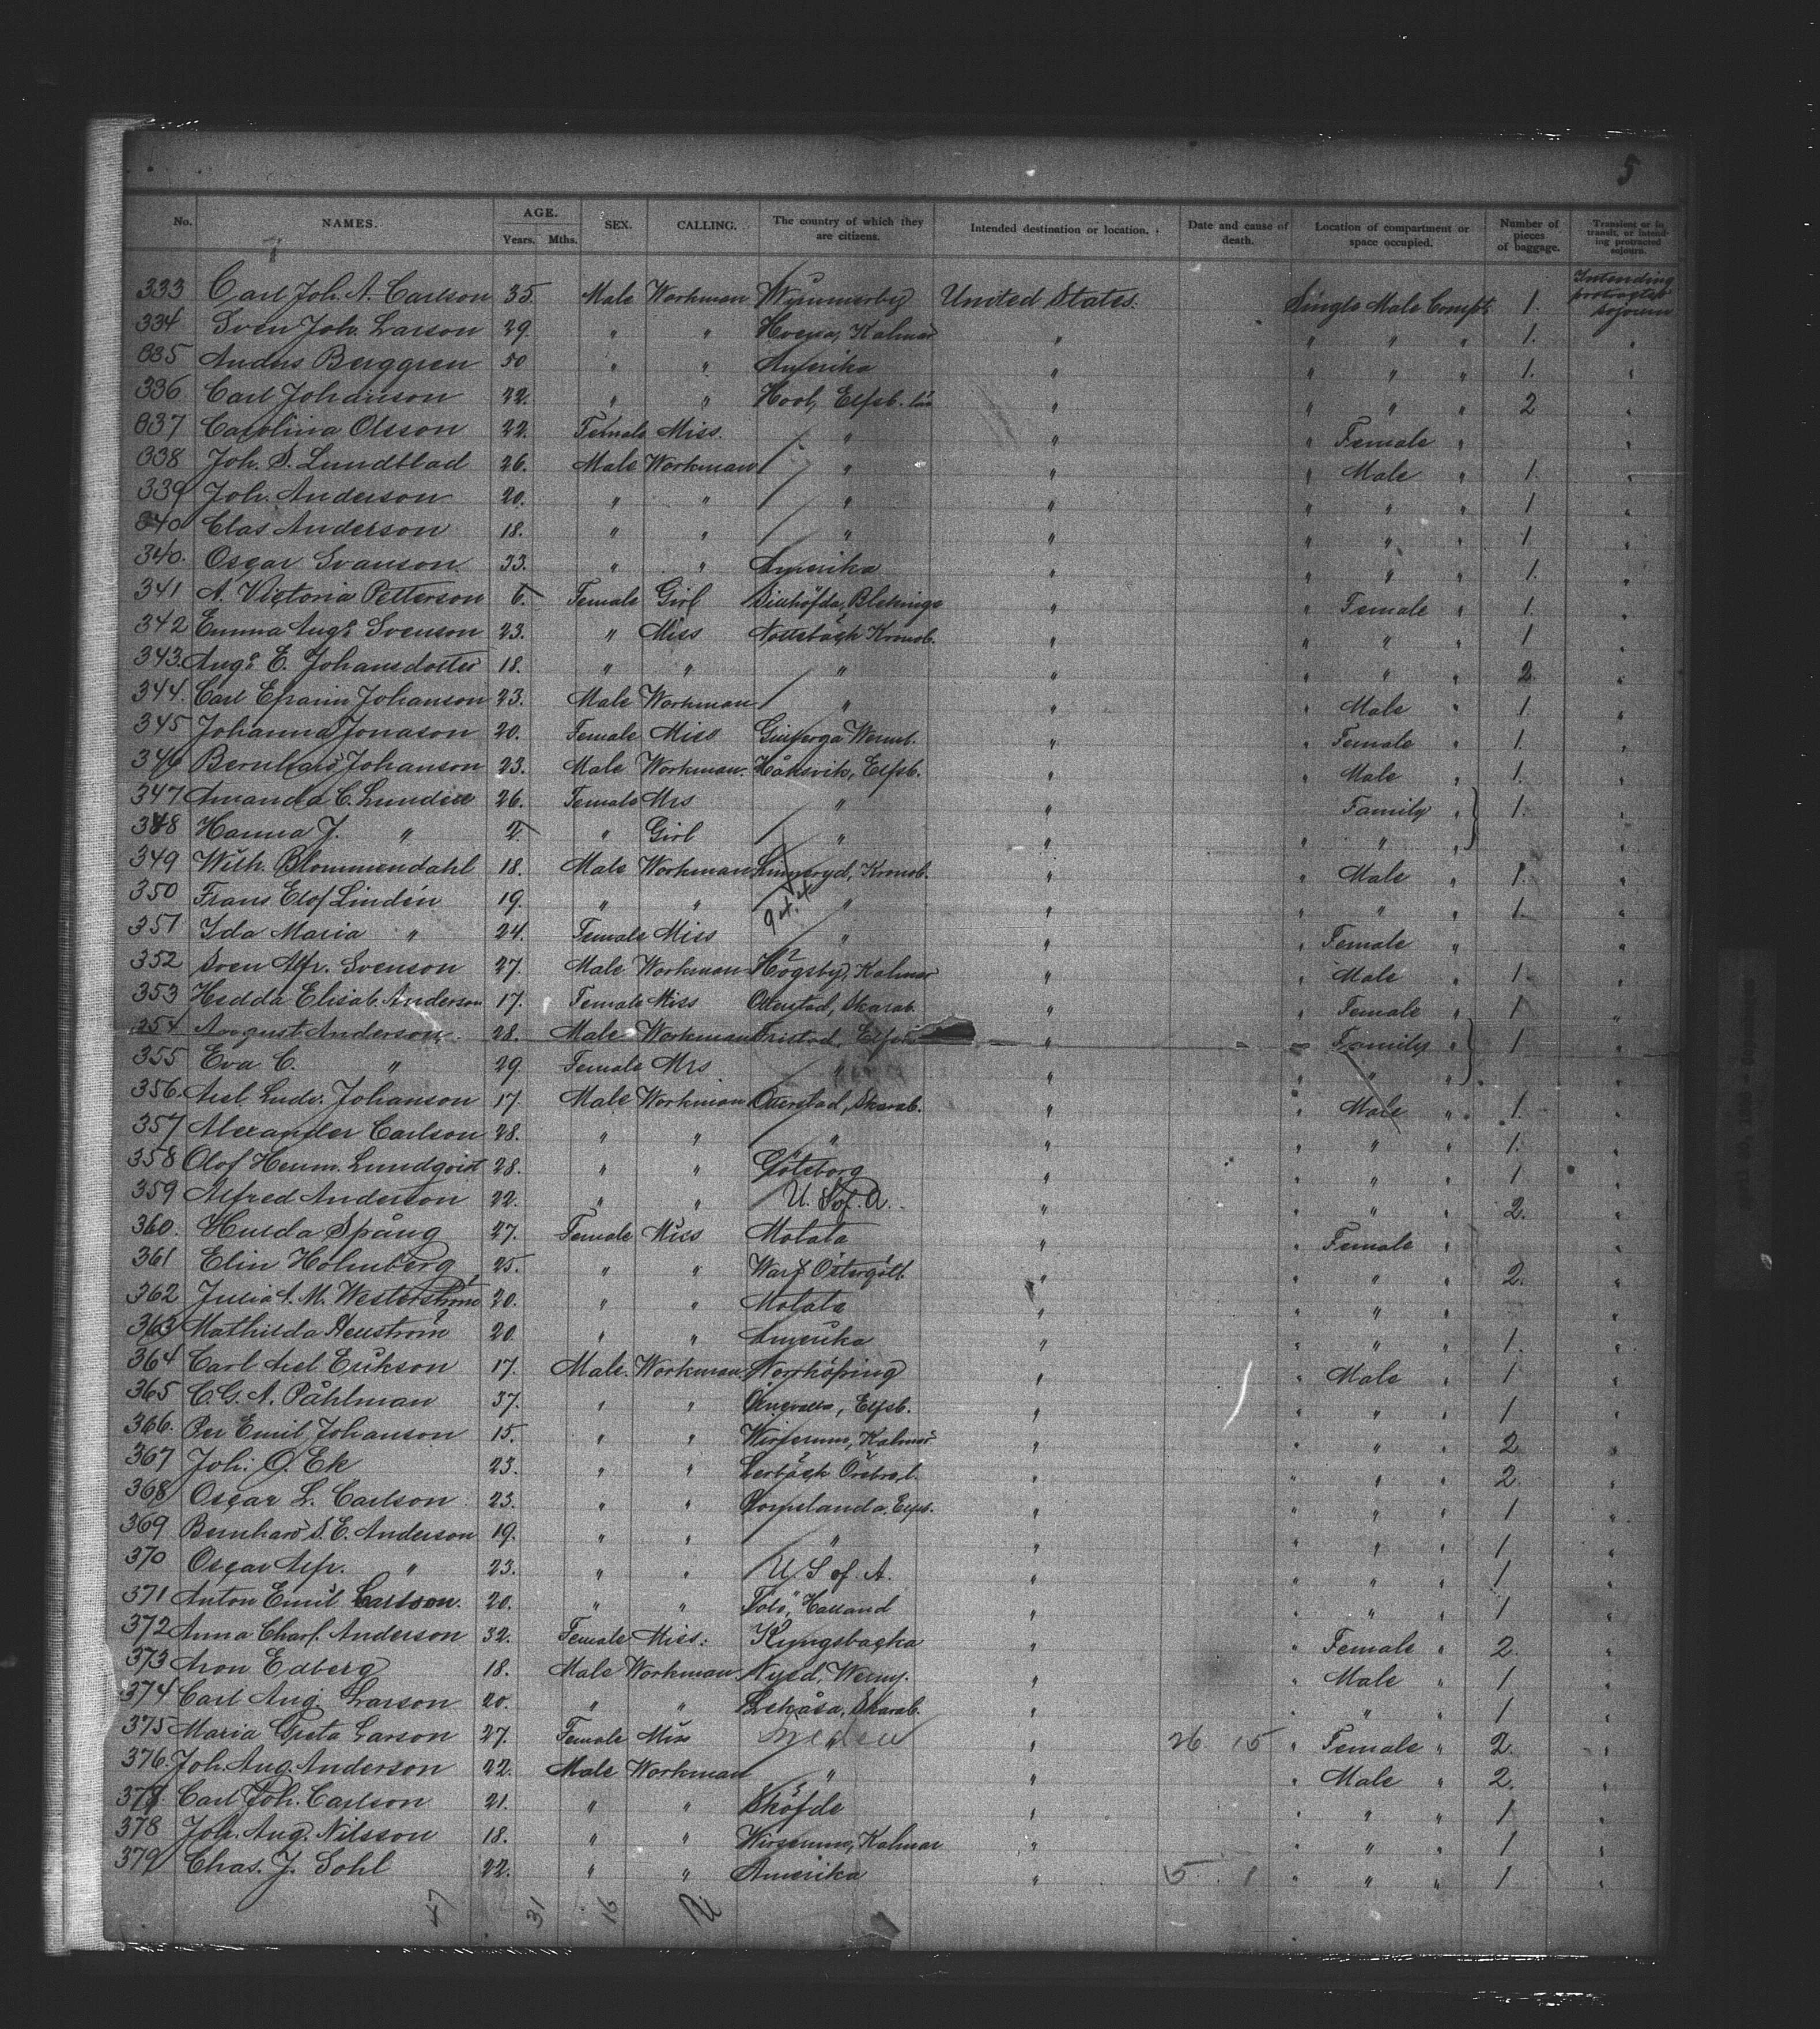 5
No. NAMES. AGE. Years. Mths. SEX. CALLING. The country of which they are citizens. Intended destination or location. Date and cause of death. Location of compartment or space occupied. Number of pieces of baggage. Transient or in transit, or intending protracted sojourn.
333 Carl Joh. A. Carlson 35. Male Workman Wimmerby United States. Single Male Compt. 1. Intending protracted sojourn
334 Sven Joh. Larson 29. " " Hvena, Kalmar " " " " 1. "
335 Anders Berggren 50 " " Amerika " " " " 1. "
336 Carl Johanson 22. " " Hool, Elfsb. län " " " " 2 "
337 Carolina Olsson 22. Female Miss. " " " Female "
338 Joh. S. Lundblad 26. Male Workman " " " Male " 1. "
339 Joh. Anderson 20. " " " " " " " 1 "
340 Clas Anderson 18. " " " " " " " 1 "
340. Oscar Svanson 33. " " Amerika " " " " 1. "
341 A. Victoria Petterson 6. Female Girl Sillhöfda, Blekinge " " Female " 1. "
342 Emma Aug. Svenson 23. " Miss Nottebäck Kronob. " " " " 1 "
343. Aug. E. Johansdotter 18. " " " " " " " 2 "
344. Carl Efraim Johanson 23. Male Workman " " " Male " 1. "
345 Johanna Jonason 20. Female Miss Gunberga Werml. " " Female " 1. "
346 Bernhard Johanson 23. Male Workman. Håksvik, Elfsb. " " Male " 1. "
347 Amanda C. Lundell 26. Female Mrs " " Family " 1. "
348 Hanna J. " 2 " Girl " " " " " "
349 Wilh. Blommendahl 18. Male Workman Linneryd, Kronob. " " Male " 1. "
350 Frans Elof Lindén 19. " " " " " " " 1. "
351 Ida Maria " 24. Female Miss " " " Female " "
352 Sven Alfr. Svenson 27. Male Workman Högsby, Kalmar " " Male " 1. "
353 Hedda Elisab. Anderson 17. Female Miss Otterstad, Skarab. " " Female " 1 "
354. August Anderson 28. Male Workman Fristad, Elfsb. " " Family " 1 "
355 Eva C. " 29 Female Mrs " " " " " "
356. Axel Ludv. Johanson 17. Male Workman Otterstad, Skarab. " " Male " 1. "
357 Alexander Carlson 28. " " " " " " " 1. "
358 Olof Herm. Lundqvist 28. " " Göteborg " " " " 1 "
359 Alfred Anderson 22. " " U. S. of. A. " " " " 2. "
360. Hulda Spång 27. Female Miss Motala " " Female " "
361 Elin Holmberg 25. " " Warf Östergötl. " " " " 2. "
362 Julia A. M. Westerström 20. " " Motala " " " "
363 Mathilda Hellström 20. " " Amerika " " " " 1. "
364 Carl Axel Erikson 17. Male. Workman Norrköping " " Male " 1 "
365 C. G. A. Påhlman 37. " " Elfsb. " " " " 1 "
366. Per Emil Johanson 15. " " Wirserum, Kalmar " " " " 2 "
367 Joh. O. Ek 23. " " Lerbäck Örebro l. " " " " 2. "
368 Oscar L. Carlson 23. " " Romelanda, Elfsb. " " " " 1 "
369 Bernhard S. E. Anderson 19. " " " " " " " 1 "
370 Oscar Alfr. " 23. " " U S of. A. " " " " 1 "
371 Anton Emil Carlson. 20. " " Tölö, Halland " " " " 1 "
372 Anna Charl. Anderson 32. Female Miss. Kungsbacka " " Female " 2. "
373 Aron Edberg 18. Male Workman Nyed, Werml. " " Male " 1 "
374 Carl Aug. Larson 20. " " Lekåsa, Skarab. " " " " 1 "
375 Maria Greta Larson 27. Female Miss Sweden " 26 15 " Female " 2. "
376. Joh. Aug. Anderson 22. Male Workman " " " Male " 2. "
377. Carl Joh. Carlson 21. " " Sköfde " " " " 1 "
378 Joh. Aug. Nilsson 18. " " Wirserum, Kalmar " " " " 1 "
379 Chas. J. Sohl 22. " " Amerika " 5 1 " " " 1 "
47 31 16